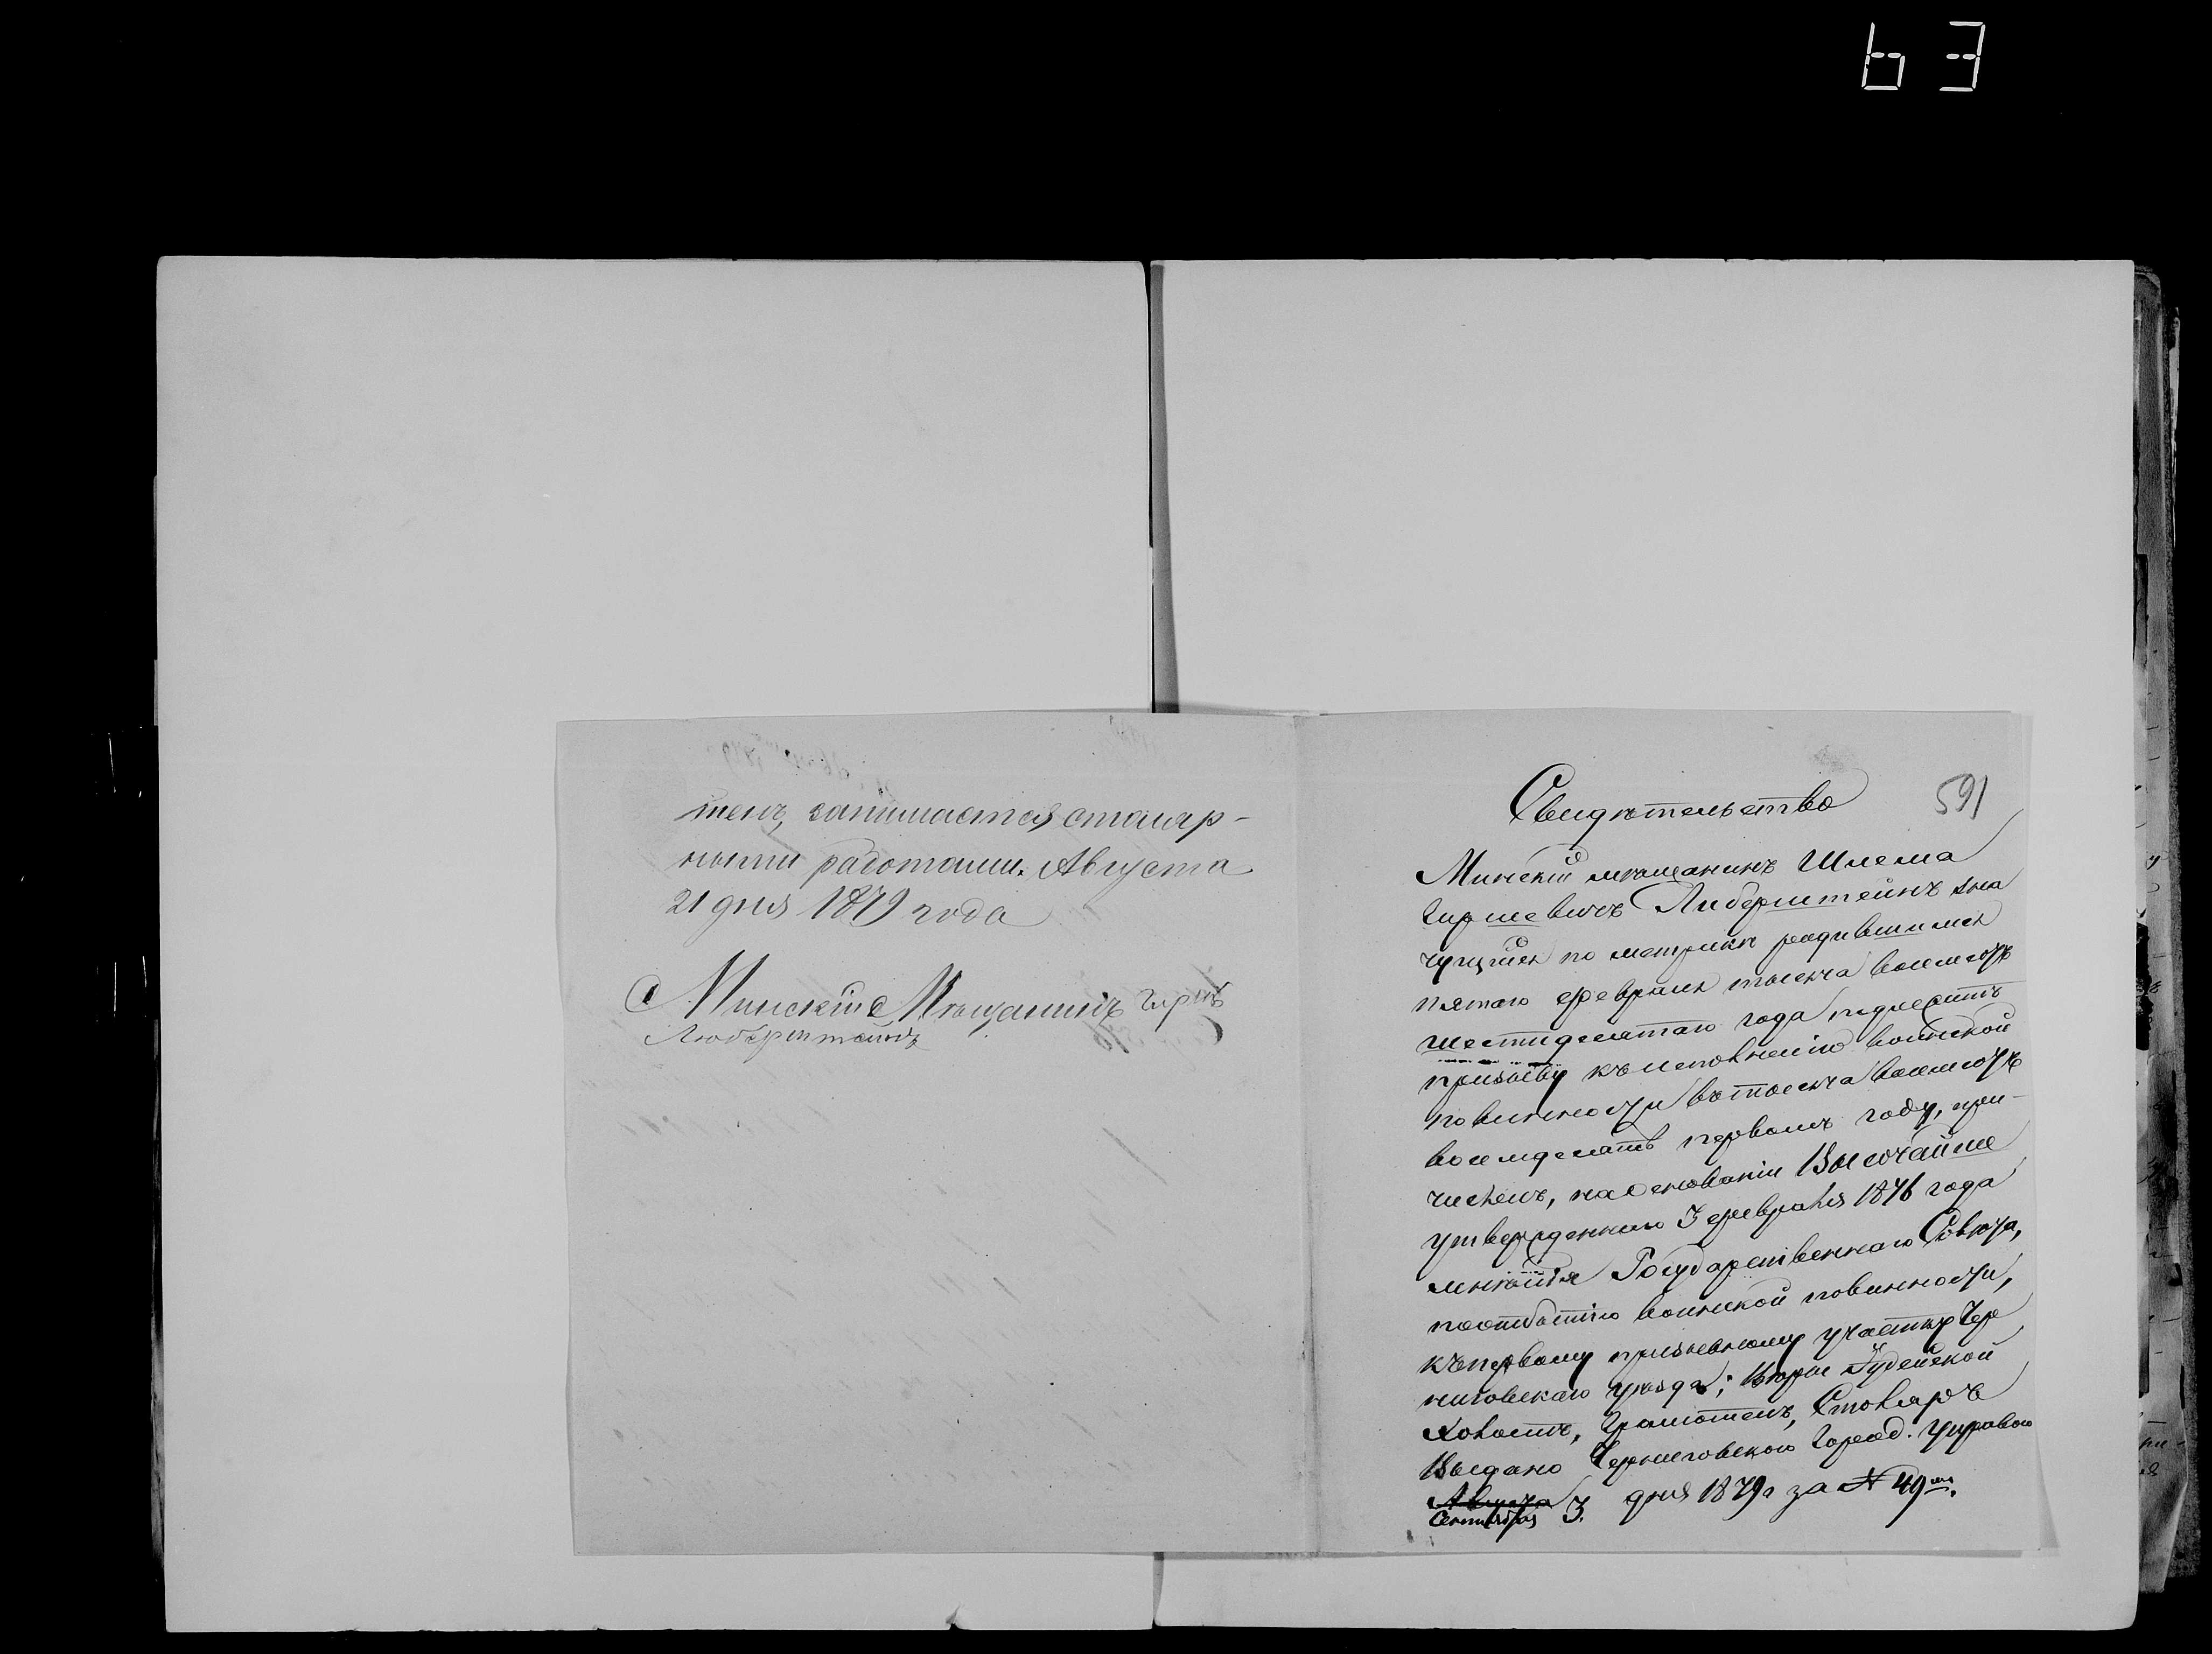 63
тенъ, занимается столяр-
ными работами. Августа
21 дня 1879 года
Минскій Мѣщанинъ Гирш
Люберштейнъ
591
Свидѣтельство
Минскій мѣщанинъ Шлема
Гиршевичъ Либерштейнъ зна
чущійся по метрикѣ родившимся
пятаго февраля тысяча восемсотъ
шестидесятаго года, подлежитъ
призыву къ исполненію воинской
повинности въ тысяча восемсотъ
восемдесятъ первомъ году, при-
численъ, на основаніи Высочайше
утвержденнаго 3 февраля 1876 года
мнѣнія Государственнаго Совѣта,
по отбытію воинской повинности,
къ первому призывному участку Чер
ниговскаго уѣзда; Вѣры Іудейской
холостъ, Грамотенъ, Столяръ
Выдано Черниговскою Город. Управою
Августа
Сентября 3. дня 1879 г за № 49мъ.